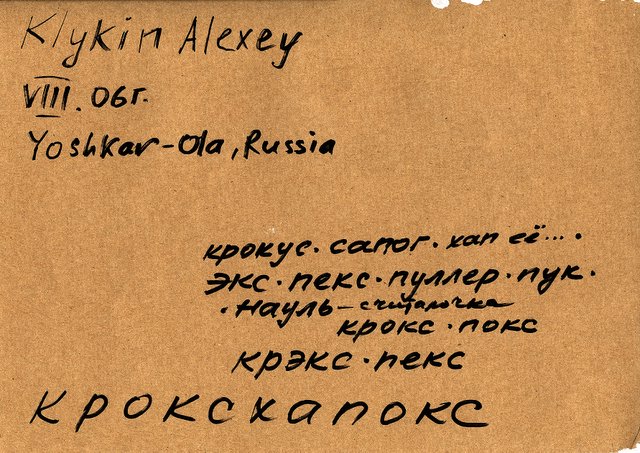 Klykin Alexey
VIII. 06г.
Yoshkar-Ola, Russia
крокус. сапог. хап её... .
экс. пекс. пуллер. пук.
. Науль - считалочка
крокс. покс
крэкс. пекс
кроксхапокс